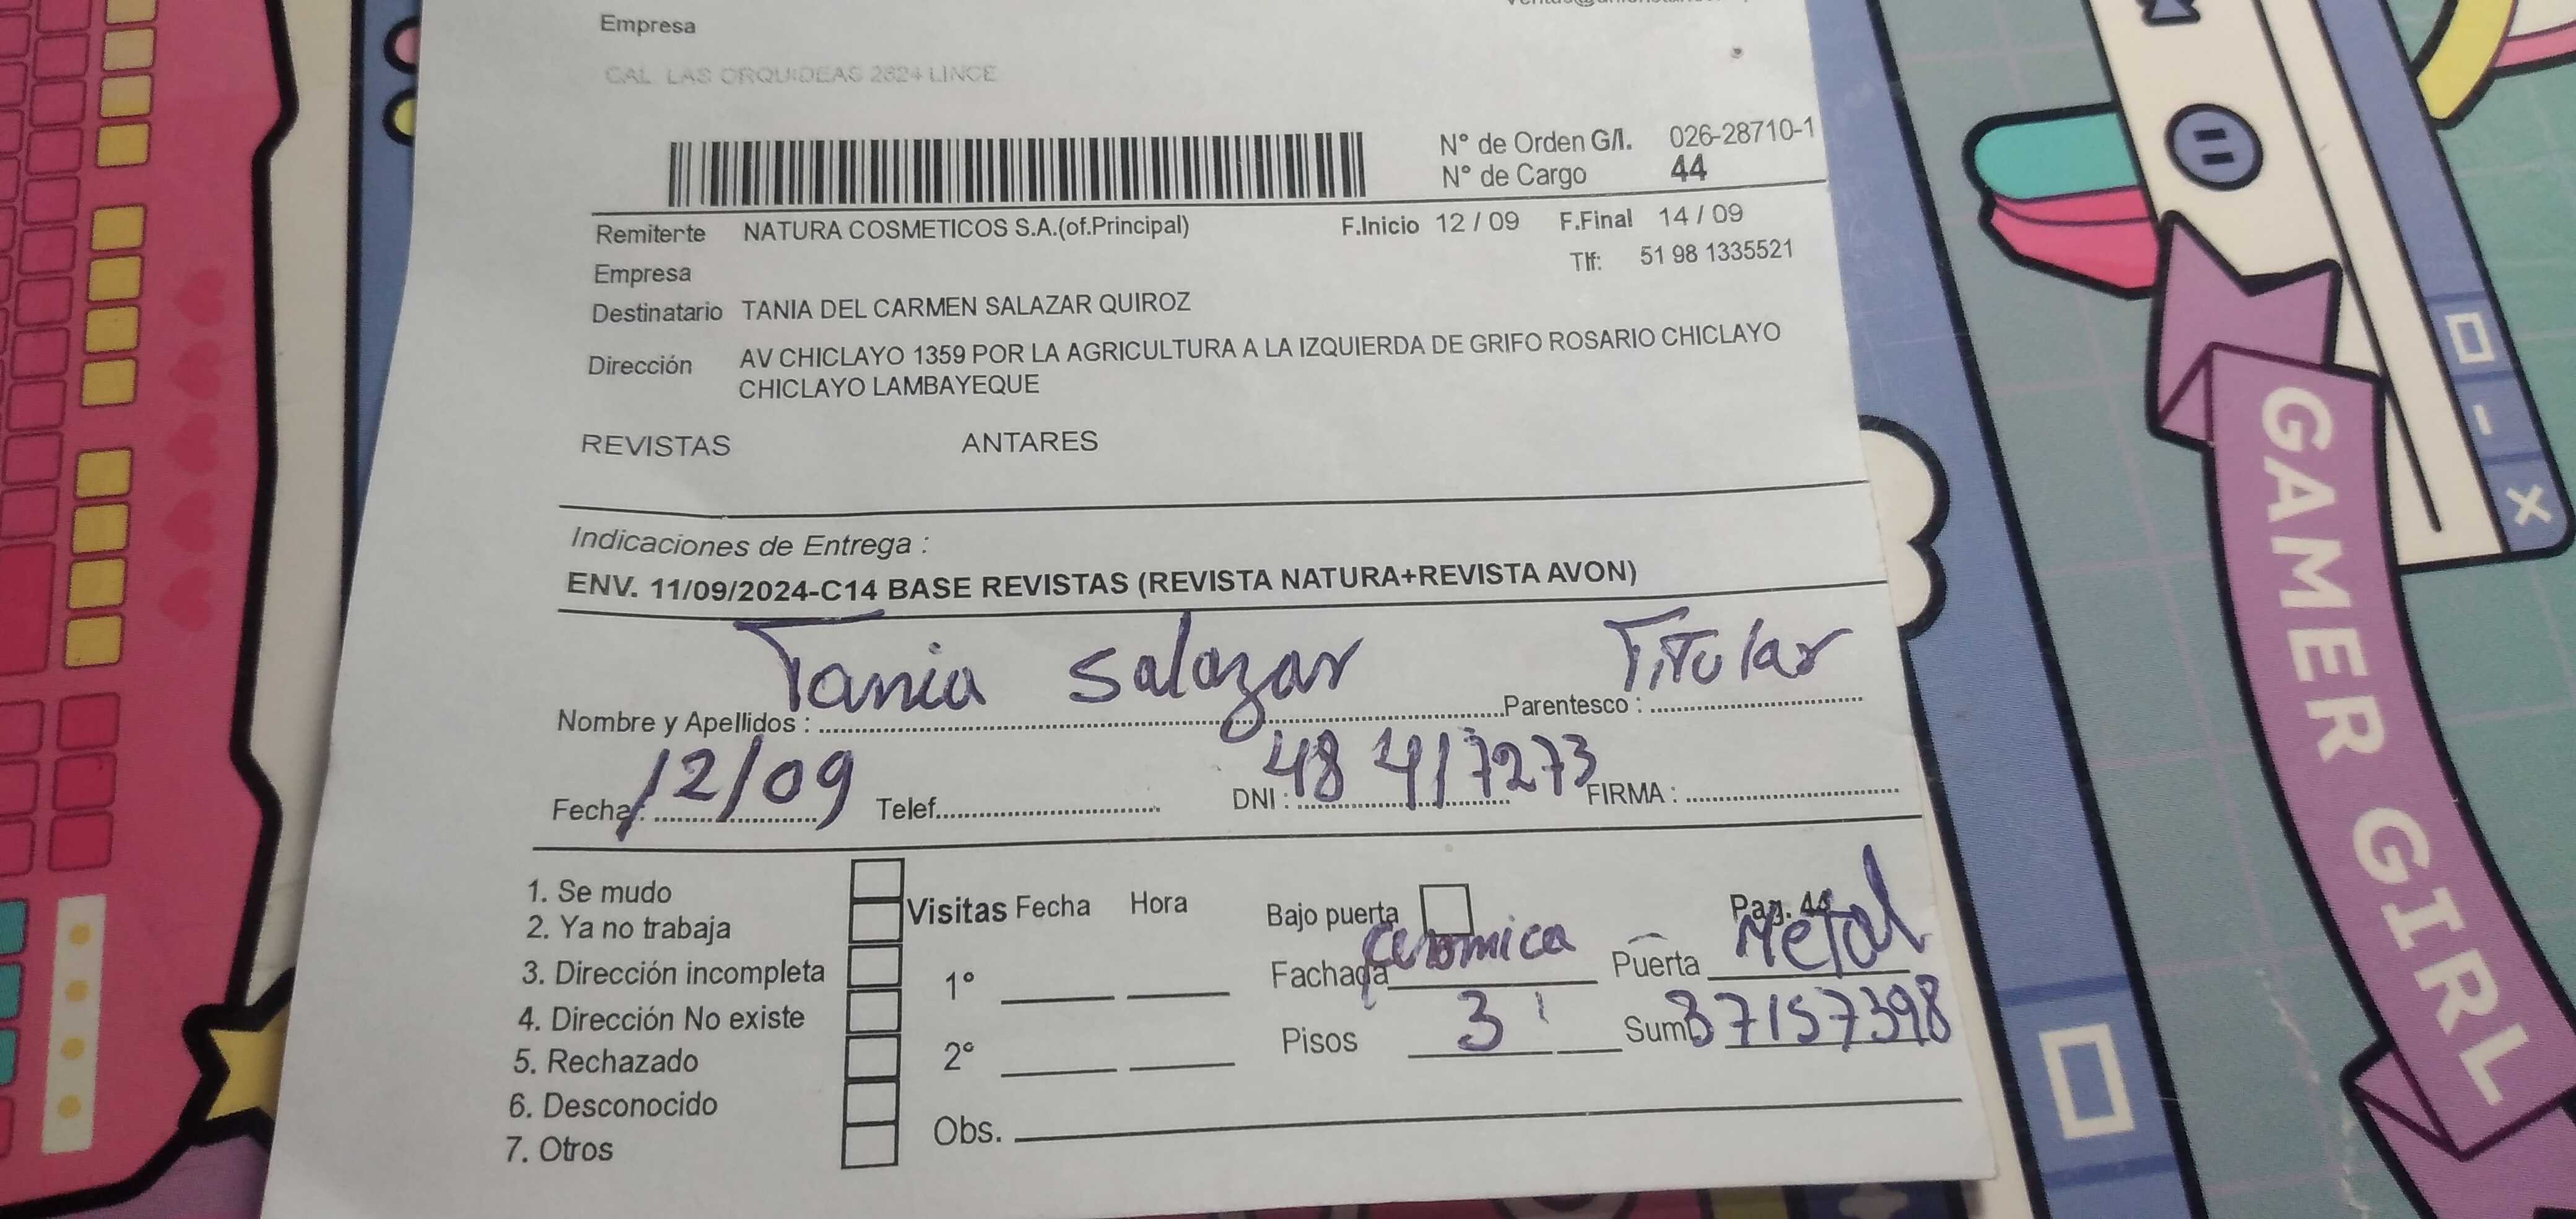 Empresa
CAL. LAS ORQUIDEAS 2624 LINCE
N° de Orden G/I. 026-28710-1
N° de Cargo 44
Remitente NATURA COSMETICOS S.A.(of.Principal) F.Inicio 12 / 09 F.Final 14 / 09
Empresa Tlf: 51 98 1335521
Destinatario TANIA DEL CARMEN SALAZAR QUIROZ
Dirección AV CHICLAYO 1359 POR LA AGRICULTURA A LA IZQUIERDA DE GRIFO ROSARIO CHICLAYO
CHICLAYO LAMBAYEQUE
REVISTAS ANTARES
Indicaciones de Entrega :
ENV. 11/09/2024-C14 BASE REVISTAS (REVISTA NATURA+REVISTA AVON)
Nombre y Apellidos : Tania Salazar Parentesco : Titular
Fecha : 12/09 Telef. DNI : 48417273 FIRMA :
1. Se mudo
2. Ya no trabaja
3. Dirección incompleta
4. Dirección No existe
5. Rechazado
6. Desconocido
7. Otros
Visitas Fecha Hora
1°
2°
Obs.
Bajo puerta Pag. 44
Fachada Ceromica Puerta Metal
Pisos 3 Sum 37157398
GAMER GIRL